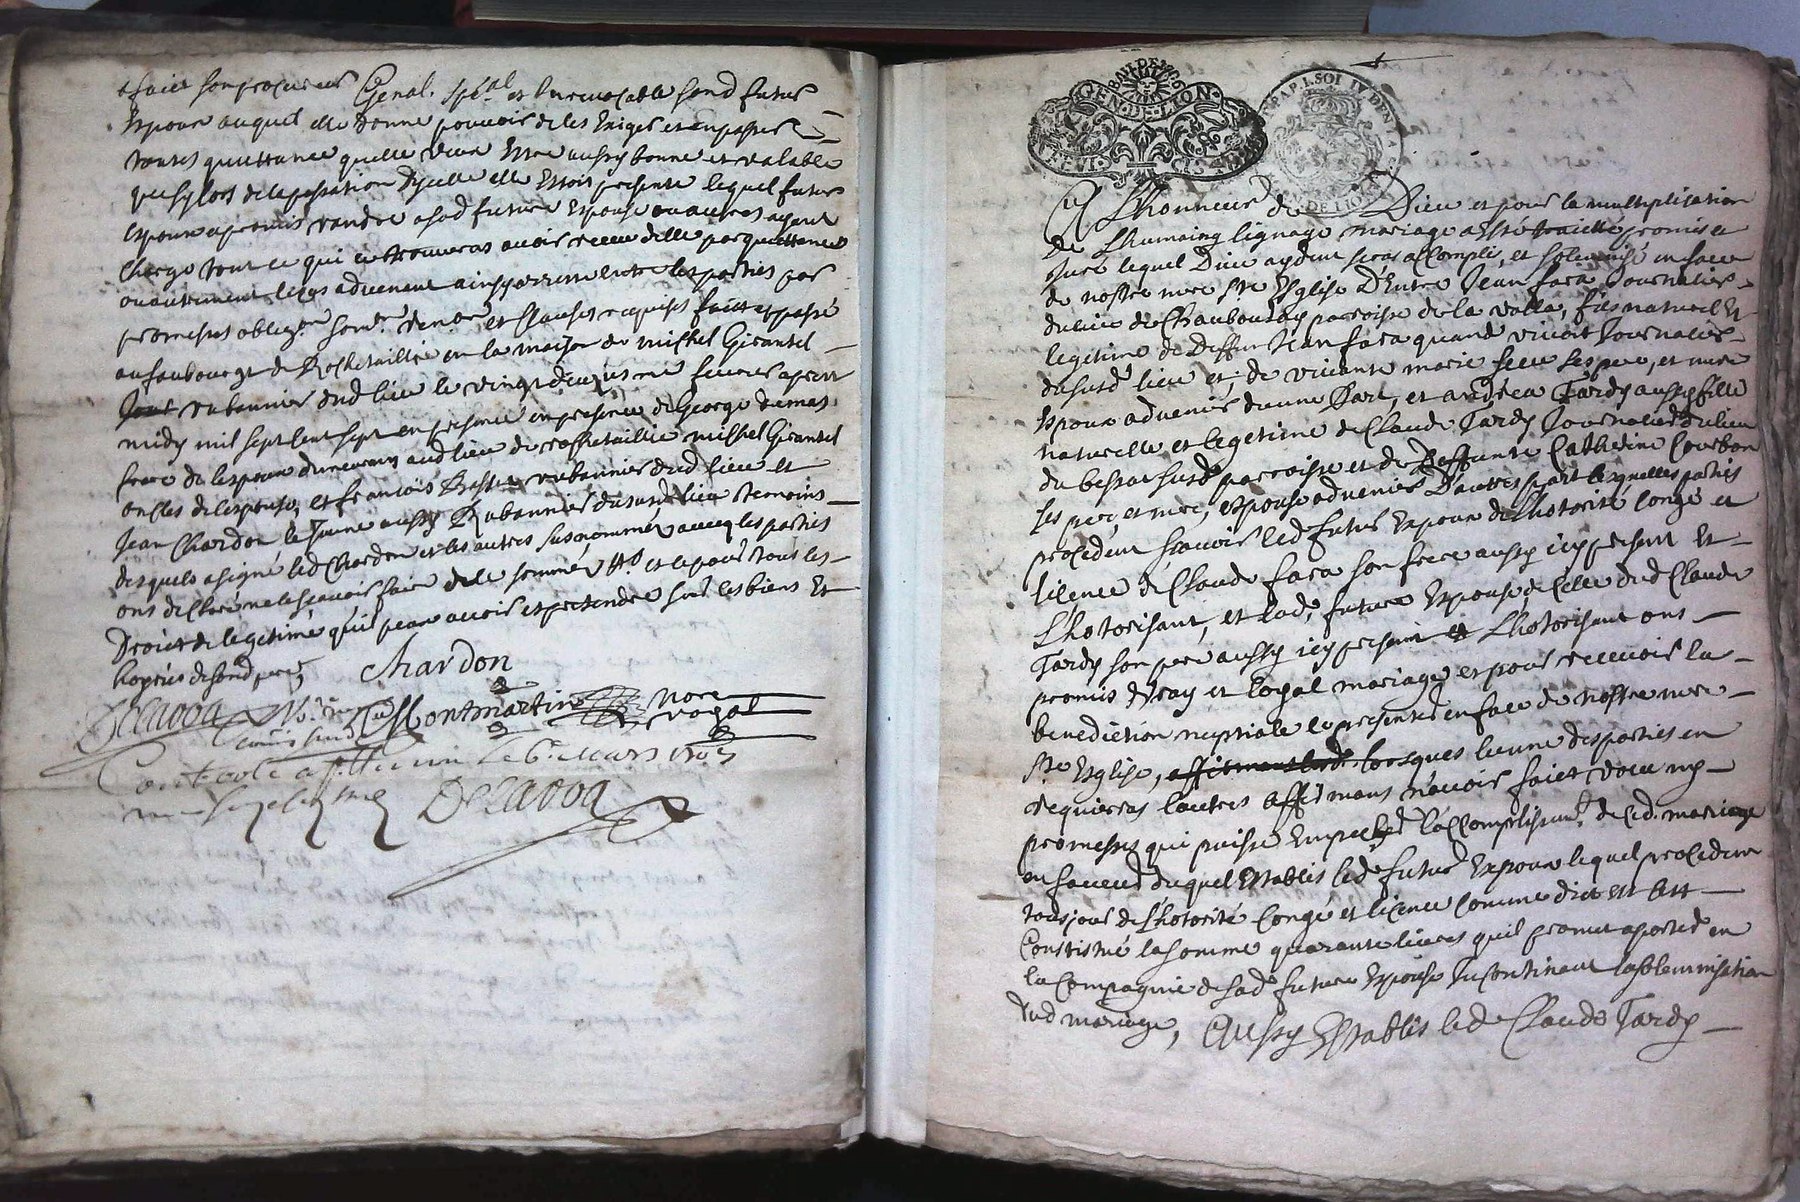 & faict son procureur Genal. spé.al et Irrevocable sond futur
Espoux auquel elle donne pouvoir de les Exiger et en passer
toutes quittance quelle veux Estre aussy bonne et valable
que sy lors de la passation dycelle elle Estoit presente lequel futur
Espoux a promis randre a sad future Espouse ou autres ayant
charge tout ce qui se trouveras avoir receu delle par quittance
ou autrement le cas advenant ainsy arreste entre les parties par
promesses oblig.on soum.on renon.on et Clauses requises faict et passé
au faubourgt de Rochetaillié en la maison de Michel Girantet
rubannier dud lieu le vingt deux.me fevrier apres
midy mil sept cent sept en presence de George dumas
frere de lespoux demeurant aud lieu de rochetaillié michel Girantet
oncles de lespouse, et françois rubannier dud lieu et
Jean Chardon le Jeune aussy Rubannier du susd lieu temoins
desquels a signé led Chardon et les autres susnommés avecq les parties
ont declaré ne le sçavoir faire de ce sommés et le pour tous les
Droict de legetime quil peux avoir et pretendre sur les biens Et
hoyries de sond pere,
chardon
Delavoa
Montmartin
Nore
royal
Controlé a st. Etienne le 6e. Mars 1707
Delavoa
GEN·DE·LION
A Lhonneur de Dieu et pour la multiplication
de Lhumaing lignage mariage a esté traicté promis et
Juré lequel Dieu aydant seras accompli, et solemnisé en face
de nostre mere Ste Esglise D'Entre Jean fara Journalier
du lieu de Chaubouray parroisse de la valla, fils naturel Et
legitime de Deffunt Jean fara quand vivoit Journalier
du susd lieu et, de vivante marie ses pere, et mere
Espoux advenir dune Part, et andréa Tardy aussy fille
naturelle et legetime de Claude Tardy Journalier du lieu
du bessat susd parroisse et de Deffunte Catherine Courbon
ses pere et mere, espouse advenir D'autres part lesquelles parties
procedant sçavoir led futur Espoux de Lhotorité Congé et
licence de Claude fara son frere aussy icy présent Et
Lhotorisant, et lad. future Espouse de Celle dud Claude
Tardy son pere aussy icy present et Lhotorisant ont
promis vray et loyal mariage et pour recevoir la
benediction nuptiale se presenter en face de nostre mere
Ste Esglise, lorsques lune des parties en
requieras lautres affirmans n'avoir faict voeu ny
promesses qui puisse Empecher laccomplissem.t de ced. mariage
en faveur duquel Establis led. futur Espoux lequel procedant
tousjour de Lhotorité Congé et licence comme dict est sest
Constitué la somme quarante livres quil promet aporter en
la Compagnie de sad. future Espouse Incontinant la solemnisation
dud mariage, Aussy Establis led Claude Tardy